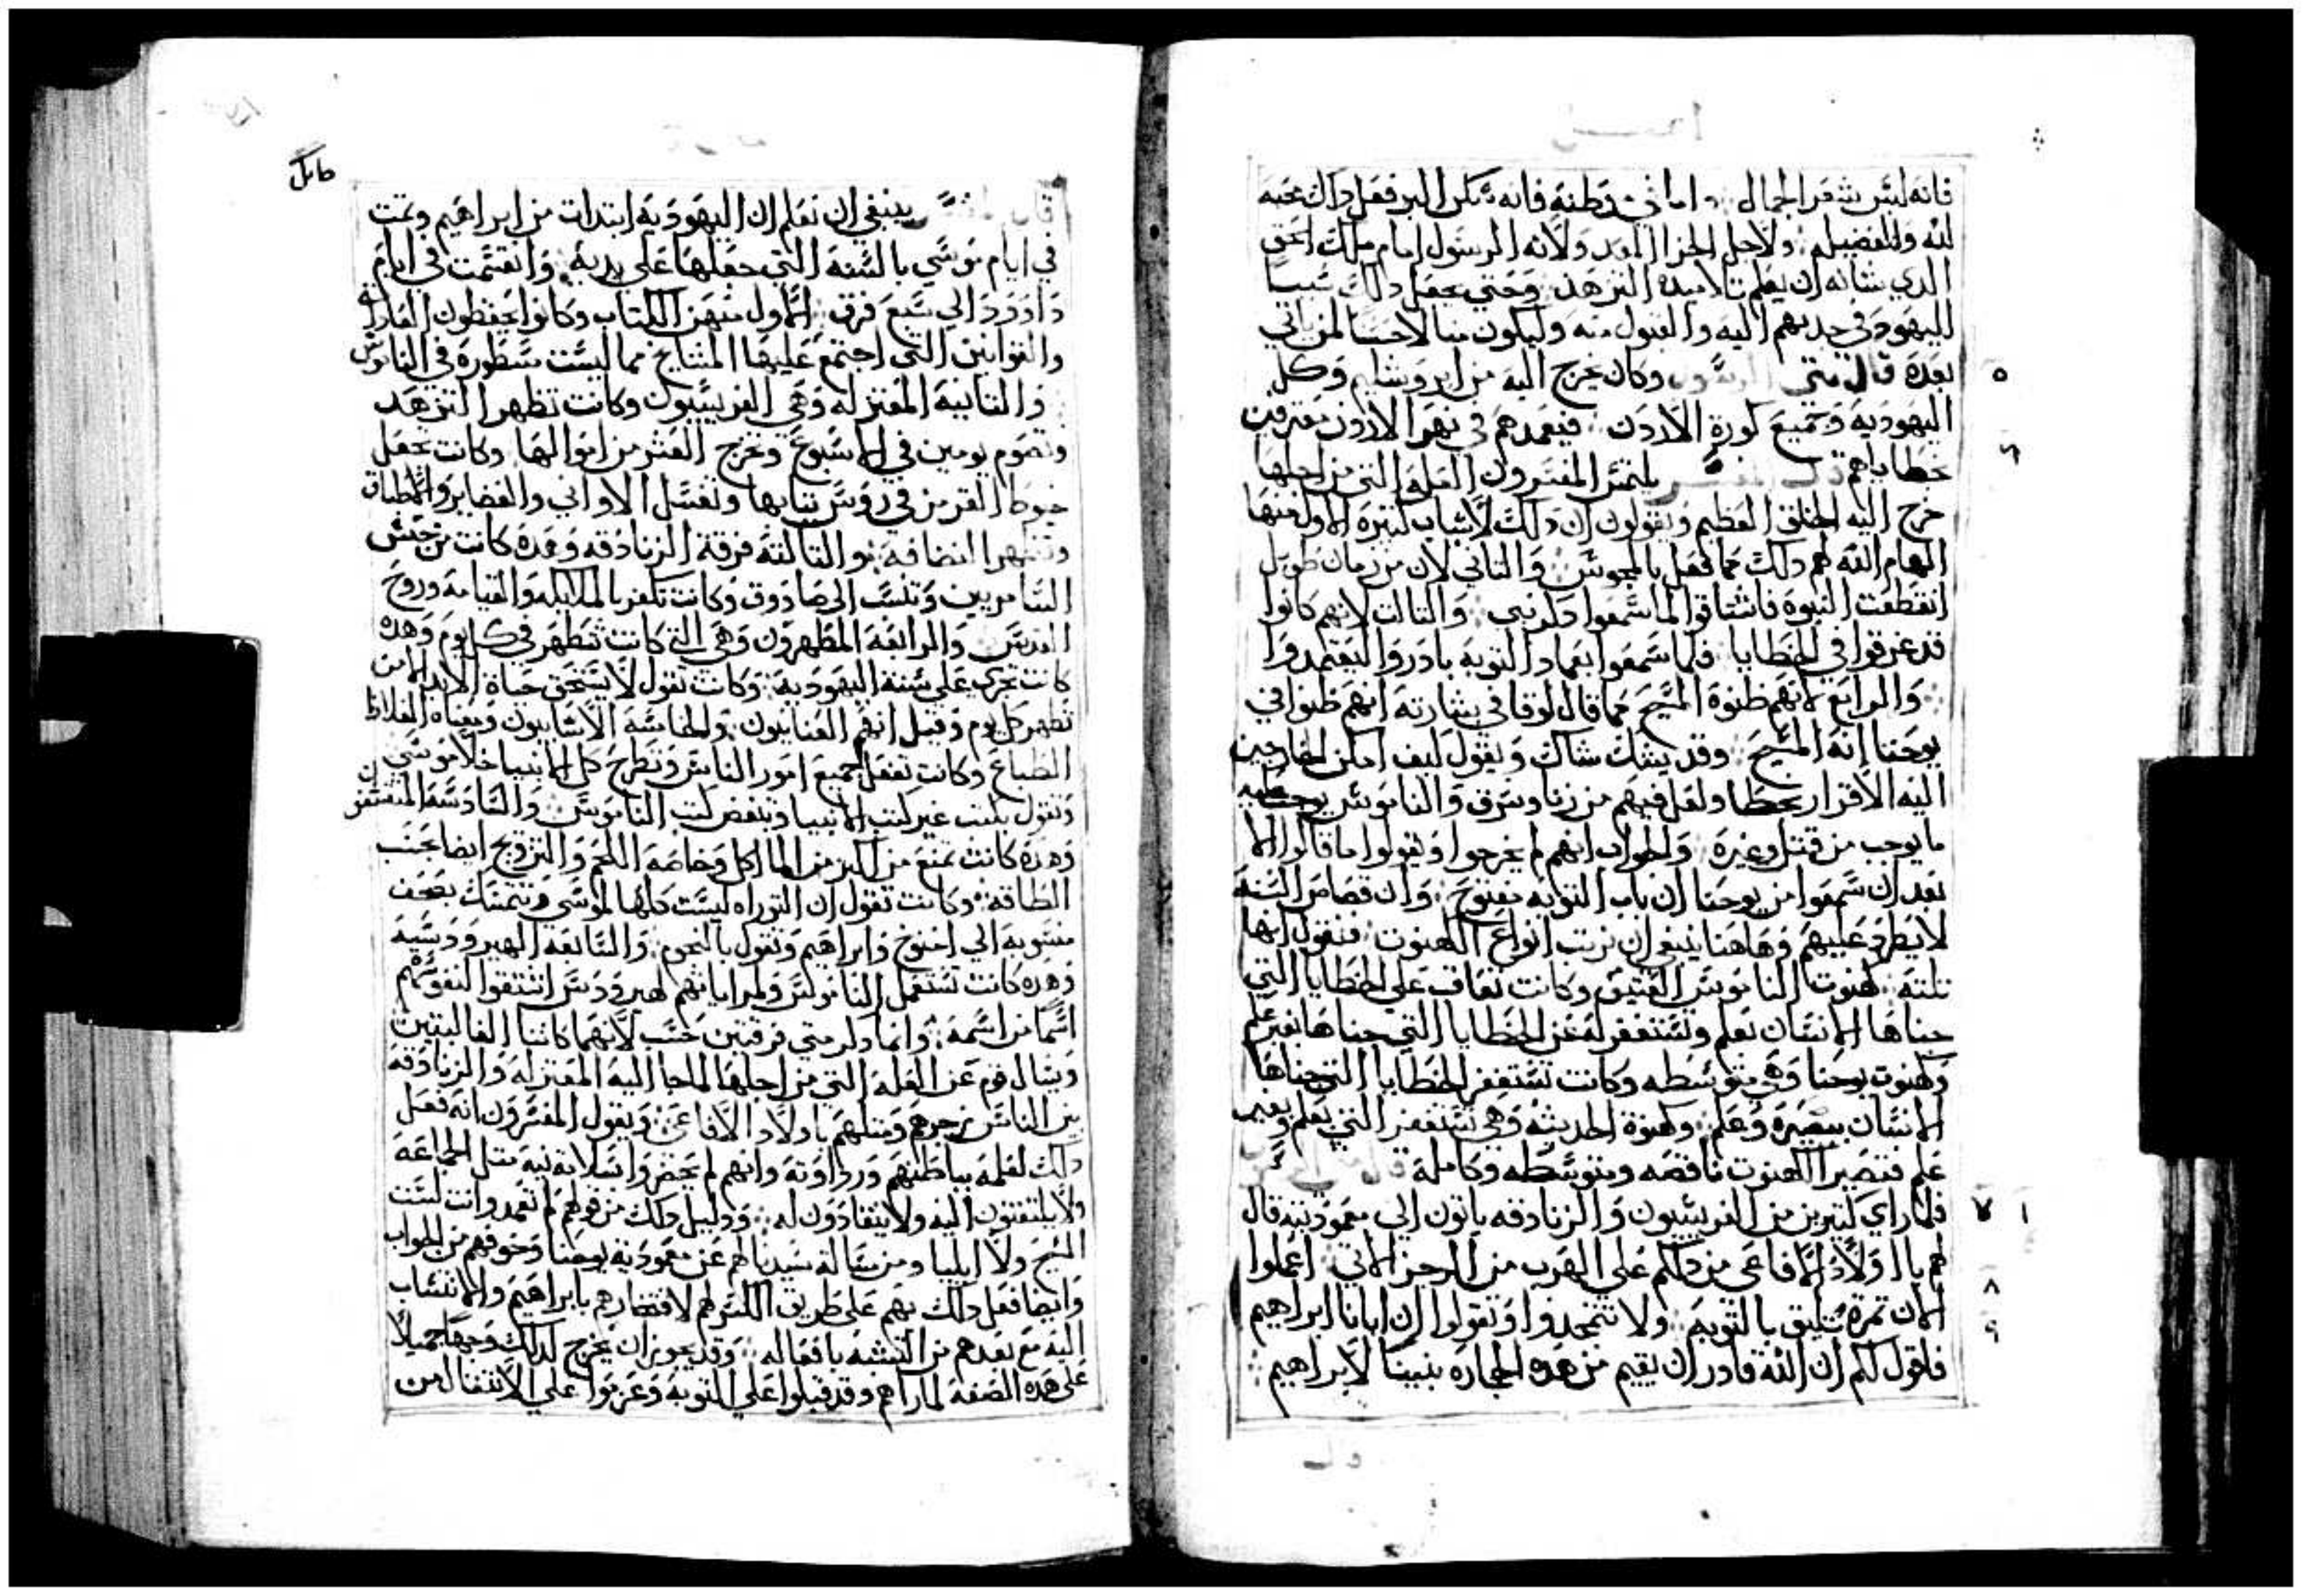 فانه لبس شعر الجمال واما في قطنه فانه تنكر البر ففعل ذلك محبه
لله وللفضيله ولاجل الجزا المعد ولانه الرسول امام ملك الحق
الدي شانه ان يعلم تلاميده التزهد وحتي يجعل دلك سببا
لليهود في جدبهم اليه والقبول منه وليكون متالا حسنا لمن ياتي
بعده قال متي الرسول وكان يخرج اليه من ايروشليم وكل
٥
اليهوديه وجميع كورة الاردن فيعمدهم في نهر الاردن معترفين
٦
خطاياهم قال المفسر يلتمس المفسرون العله التي من اجلها
خرج اليه الخلق العظيم ويقولون ان دلك لاسباب كتيره الاول منها
الهام الله لهم دلك كما فعل بالمجوس والتاني لان من زمان طويل
انقطعت النبوه فاشتاقوا لما سمعوا دكر نبي والتالت لانهم كانوا
قد غرقوا في الخطايا فلما سمعوا بعماد التوبه بادروا ليعتمدوا
والرابع لانهم ظنوه المسيح كما قال لوقا في بشارته انهم ظنوا في
يوحنا انه المسيح وقد يشك شاك ويقول كيف امكن الخارجين
اليه الاقرار بخطا ولعل فيهم من زنا وسرق والناموس يوجب عليه
ما يوجب من قتل وغيره والجواب انهم لم يخرجوا ويقولوا ما قالوا الا
بعد ان سمعوا من يوحنا ان باب التوبه مفتوح وان قصاص السنه
لا يطرد عليهم وهاهنا ينبغي ان نرتب انواع الكهنوت فنقول انها
تلته كهنوت الناموس العتيق وكانت تعاقب علي الخطايا التي
جناها الانسان بعلم وتستغفر له عن الخطايا التي جناها بغير علم
وكهنوت يوحنا وهي متوسطه وكانت تستغفر الخطايا التي جناها
الانسان ببصيرة وعلم وكهنوة الحديثه وهي تستغفر التي بعلم وبغير
علم فتصير الكهنوت ناقصه ومتوسطه وكاملة قال متي
فلما راي كتيرين من الفريسيون والزنادقه ياتون الي معموديته قال
٧ ١
لهم يا اولاد الافاعي من دلكم علي الهرب من الرجز الاتي اعملوا
٨
الان تمرة تليق بالتوبة ولا تتمجدوا وتقولوا ان ابانا ابراهيم
٩
فاقول لكم ان الله قادر ان يقيم من هده الحجاره بنينا لابراهيم
قال المفسر ينبغي ان نعلم ان اليهودية ابتدات من ابراهيم وتمت
في ايام موسي بالسنه التي جعلها علي يديه وانقسمت في ايام
داوود الي سبع فرق الاول منهن الكتاب وكانوا يحفظون العادات
والقوانين التي اجتمع عليها المشايخ مما ليست مسطوره في الناموس
والتانيه المعتزله وهي الفريسيون وكانت تظهر التزهد
وتصوم يومين في الاسبوع وتخرج العشر من اموالها وكانت تجعل
خيوط القرمز في روس تيابها وتغسل الاواني والغضاير والاطباق
وتظهر النضافه والتالتة فرقة الزنادقه وهده كانت من جنس
السامريين وتنسب الي صادوق وكانت تكفر بالملايكه والقيامه وروح
القدس والرابعة المطهرون وهي التي كانت تتطهر في كل يوم وهده
كانت تجري علي سنة اليهوديه وكانت تقول لا يستحق حياة الابد الا من
تطهر كل يوم وقيل انهم العنانيون والخامسه الاسانيون ومعناه الغلاظ
الطباع وكانت تفعل جميع امور الناس وتطرح كل الانبيا خلا موسي
وتقول بكتب غير كتب الانبيا وبنقض كتب الناموس والسادسه
وهده كانت تمنع من اكتر من الماكل وخاصه اللحم والتزويج ايضا بحسب
الطاقه وكانت تقول ان التوراه ليست كلها لموسي وتتمسك بصحف
منسوبه الي اخنوخ وابراهيم وتقول بالنجوم والسابعه الهيروودسيه
وهده كانت تستعمل الناموس ولمراياتهم لهيرودس اشتقوا لنفوسهم
اسما من اسمه وانما دكر متي فرقتين حسب لانهما كانتا الغالبتين
ويسال قوم عن العله التي من اجلها لما جا اليه المعتزله والزنادقه
من الناس زجرهم ومتلهم باولاد الافاعي ويقول المفسرون انه فعل
دلك لعلمه بباطنهم ورداوته وانهم لم يحضروا بسلامة نيه متل الجماعه
ولا يلتفتون اليه ولا ينقادون له ودليل دلك من قولهم لم تعمد وانت لست
المسيح ولا ايليا ومن مسالة سيدنا لهم عن معمودية يوحنا وخوفهم من الجواب
وايضا فعل دلك بهم علي طريق الكسر لهم لافتخارهم بابراهيم والانتساب
اليه مع بعدهم من التشبه بافعاله وقد يجوز ان يخرج لدلك وجها جميلا
علي هده الصفه لما راهم وقد قبلوا علي التوبه وعزموا علي الانتقال من